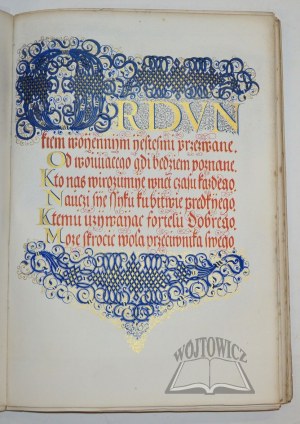 ORDVN
kiem woiennym yestesm przezwane,
Od woiuiącego gdi bedziem poznane.
Kto nas wirozumie wneti czasu każdego,
Nauczi sye Ʃiku ku bitwie prędkiego,
Ktemu używania fortelu Dobrego
Może skrócic wola przeciwnika swego.
WÓJTOWICZ